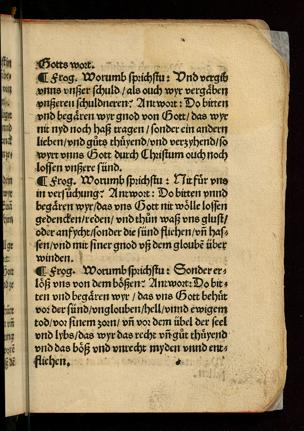 Gotts wort.
¶ Frog. Worumb sprichstu: Vnd vergib
vnns vnßer schuld/als ouch wyr vergäben
vnßeren schuldneren? Antwort: Do bitten
vnd begären wyr gnod von Gott/das wyr
nit nyd noch haß tragen/sonder ein andern
lieben/vnd gůts thüyend/vnd verzyhend/so
wyrt vnns Gott durch Christum ouch noch
lossen vnßere sünd.
¶ Frog. Worumb sprichstu: Nit für vns
in versůchung? Antwort: Do bitten vnnd
begären wyr/das vns Gott nit wölle lossen
gedencken/reden/vnd thůn waß vns glust/
oder anfycht/sonder die sünd fliehen/vñ has-
sen/vnd mit siner gnod vß dem gloubē über
winden.
¶ Frog. Worumb sprichstu: Sonder er-
löß vns von dem bößen? Antwort: Do bit-
ten vnd begären wyr/das vns Gott behüt
vor der sünd/vnglouben/hell/vnnd ewigem
tod/vor sinem zorn/vñ vor dem übel der seel
vnd lybs/das wyr das recht vñ gůt thüyend
vnd das böß vnd vnrecht myden vnnd ent-
fliehen.